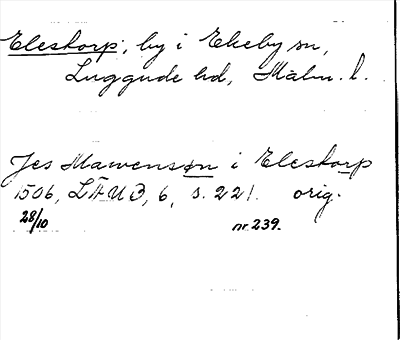 Elestorp, by i Ekeby sn,
Luggude hd, Malm. l.
Jes Mawensøn i Elestorp
1506, LÄU 3, 6, s. 221. orig.
28/10 nr. 239.